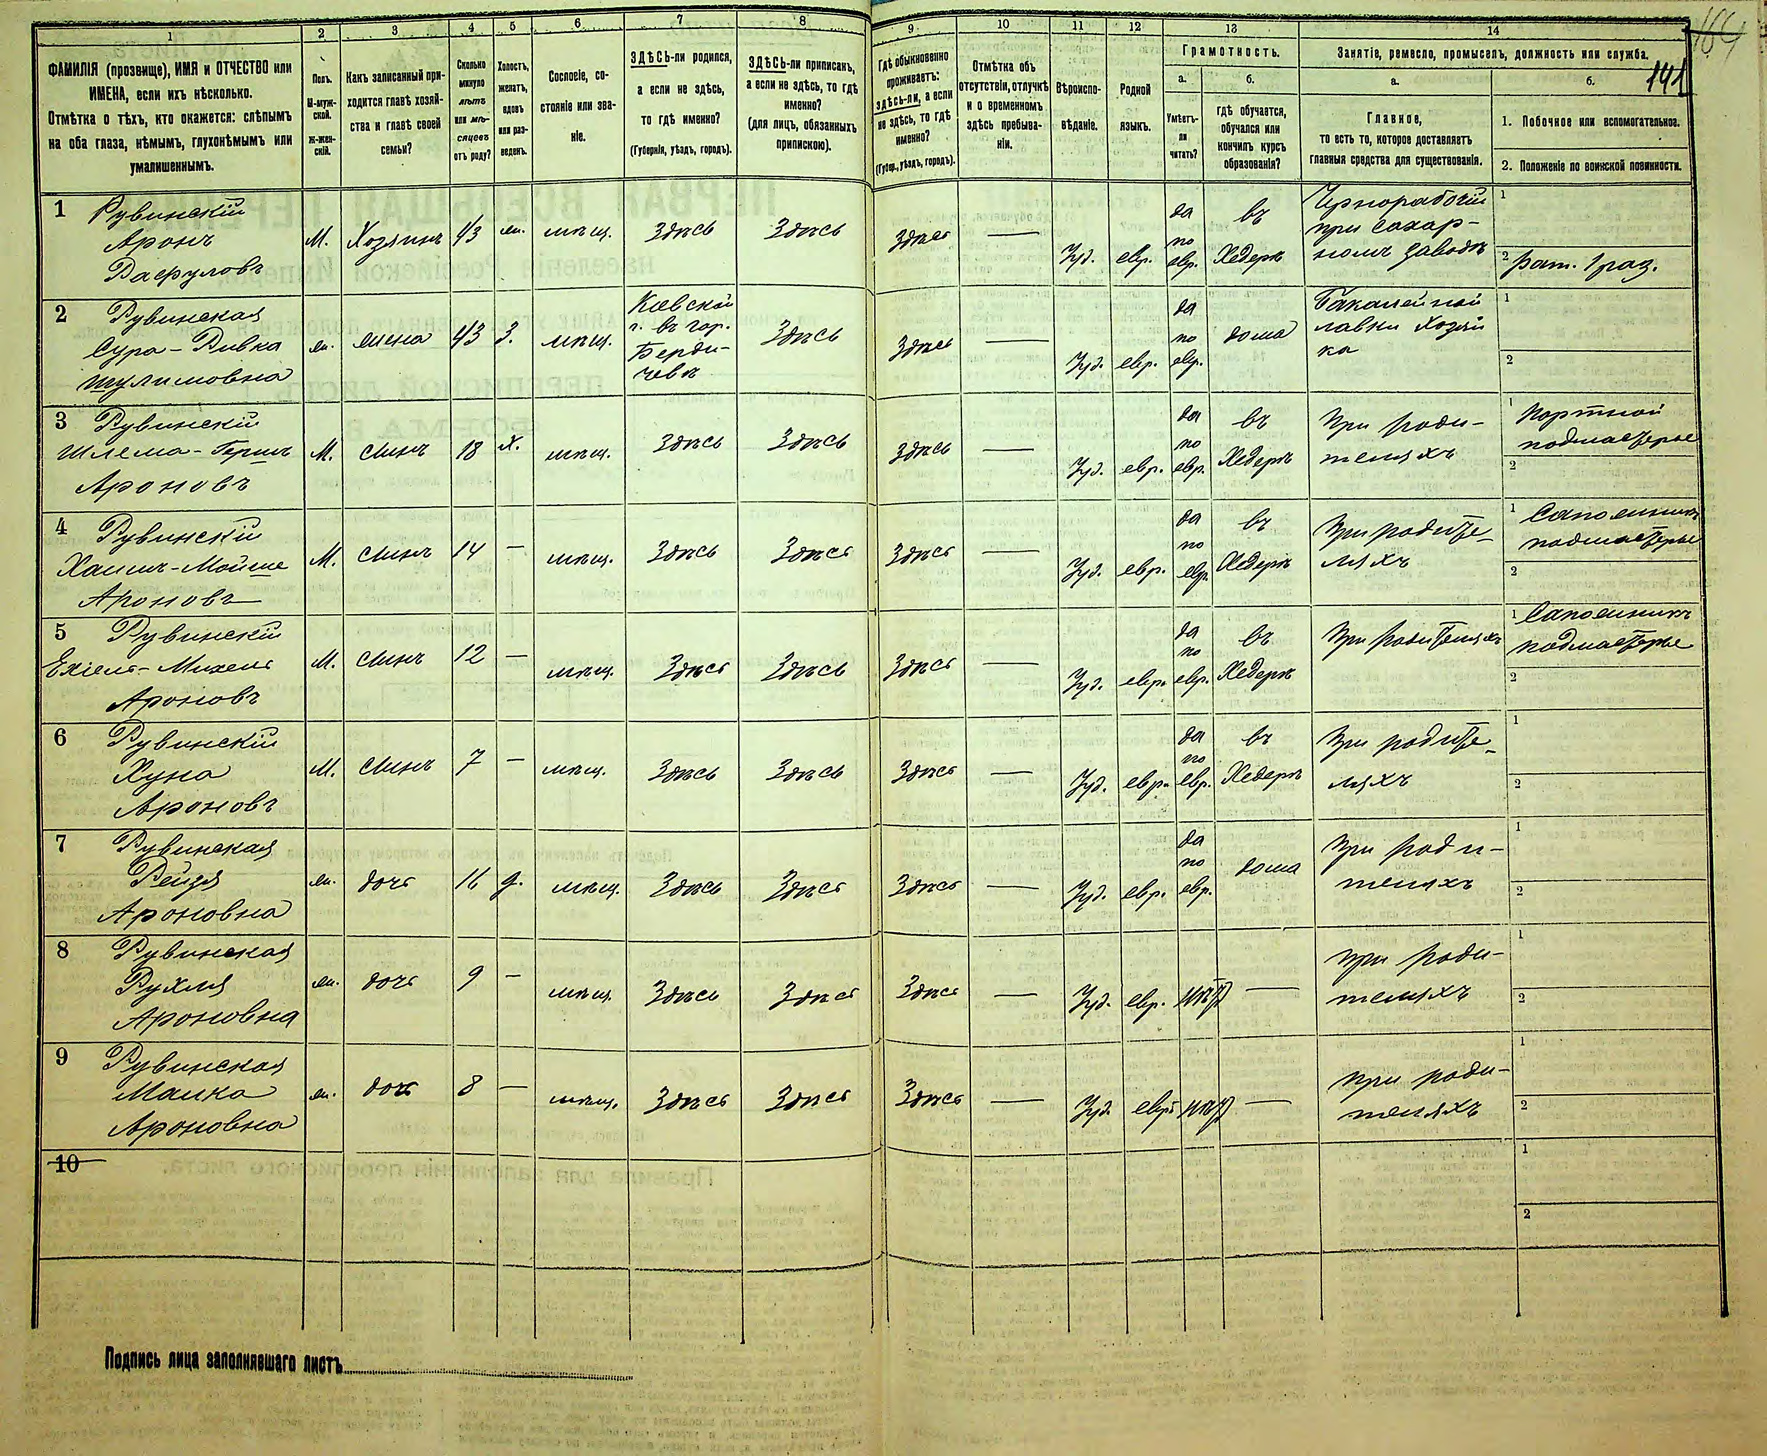 164
141
1 2 3 4 5 6 7 8 9 10 11 12 13 14
ФАМИЛІЯ (прозвище), ИМЯ и ОТЧЕСТВО или
ИМЕНА, если ихъ нѣсколько.
Отмѣтка о тѣхъ, кто окажется: слѣпымъ
на оба глаза, нѣмымъ, глухонѣмымъ или
умалишеннымъ.
Полъ.
М-муж-
ской.
Ж-жен-
скій.
Какъ записанный при-
ходится главѣ хозяй-
ства и главѣ своей
семьи?
Сколько
минуло
лѣтъ
или мѣ-
сяцевъ
отъ роду?
Холостъ,
женатъ,
вдовъ
или раз-
веденъ.
Сословіе, со-
стояніе или зва-
ніе.
ЗДѢСЬ-ли родился,
а если не здѣсь,
то гдѣ именно?
(Губернія, уѣздъ, городъ).
ЗДѢСЬ-ли приписанъ,
а если не здѣсь, то гдѣ
именно?
(для лицъ, обязанныхъ
припискою).
Гдѣ обыкновенно
проживаетъ:
здѣсь-ли, а если
не здѣсь, то гдѣ
именно?
(Губер., уѣздъ, городъ).
Отмѣтка объ
отсутствіи, отлучкѣ
и о временномъ
здѣсь пребыва-
ніи.
Вѣроиспо-
вѣданіе.
Родной
языкъ.
Грамотность.
а.
Умѣетъ-
ли
читать?
б.
гдѣ обучается,
обучался или
кончилъ курсъ
образованія?
Занятіе, ремесло, промыселъ, должность или служба.
а.
Главное,
то есть то, которое доставляетъ
главныя средства для существованія.
б.
1. Побочное или вспомогательное.
2. Положеніе по воинской повинности.
1 Рувинскій
Аронъ
Расфуловъ
М. Хозяинъ 43 ж. мѣщ. Здѣсь Здѣсь Здѣсь — Іуд. евр.
да
по
евр.
въ
Хедерѣ
Чернорабочій
при сахар-
номъ заводѣ
1
2 рат. 1 раз.
2 Рувинская
Сура-Ривка
Шулимовна
ж. жена 43 З. мѣщ.
Кіевской
г. въ гор.
Берди-
чевѣ
Здѣсь Здѣсь — Іуд. евр.
да
по
евр.
дома
Бакалейной
лавки хозяй
ка
1
2
3 Рувинскій
Шлема-Гершъ
Ароновъ
М. сынъ 18 х. мѣщ. Здѣсь Здѣсь Здѣсь — Іуд. евр.
да
по
евр.
въ
Хедерѣ
При роди-
теляхъ
1 Портной
подмастерье
2
4 Рувинскій
Хаимъ-Мойше
Ароновъ
М. сынъ 14 — мѣщ. Здѣсь Здѣсь Здѣсь — Іуд. евр.
да
по
евр.
въ
Хедерѣ
При родите-
ляхъ
1 Сапожникъ
подмастерье
2
5 Рувинскій
Ехіель-Михель
Ароновъ
М. сынъ 12 — мѣщ. Здѣсь Здѣсь Здѣсь — Іуд. евр.
да
по
евр.
въ
Хедерѣ
При родителяхъ
1 Сапожникъ
подмастерье
2
6 Рувинскій
Хуна
Ароновъ
М. сынъ 7 — мѣщ. Здѣсь Здѣсь Здѣсь — Іуд. евр.
да
по
евр.
въ
Хедерѣ
При родите-
ляхъ
1
2
7 Рувинская
Рейзя
Ароновна
ж. дочь 16 д. мѣщ. Здѣсь Здѣсь Здѣсь — Іуд. евр.
да
по
евр.
дома
При роди-
теляхъ
1
2
8 Рувинская
Рухля
Ароновна
ж. дочь 9 — мѣщ. Здѣсь Здѣсь Здѣсь — Іуд. евр. нѣтъ —
При роди-
теляхъ
1
2
9 Рувинская
Малка
Ароновна
ж. дочь 8 — мѣщ. Здѣсь Здѣсь Здѣсь — Іуд. евр. нѣтъ —
При роди-
теляхъ
1
2
10
1
2
Подпись лица заполнявшаго листъ